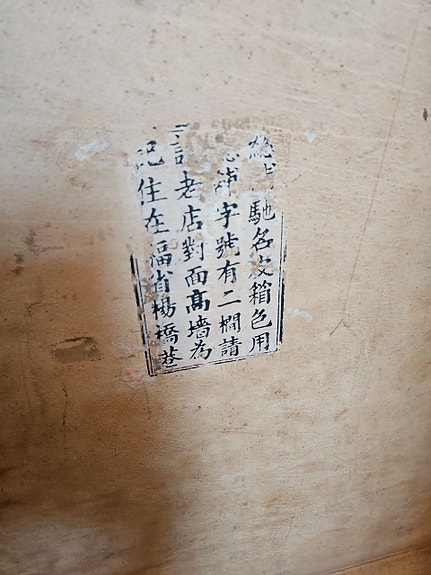 馳名皮箱色用
字號有二櫊請
記老店對面髙墻為
記住在福省楊橋巷